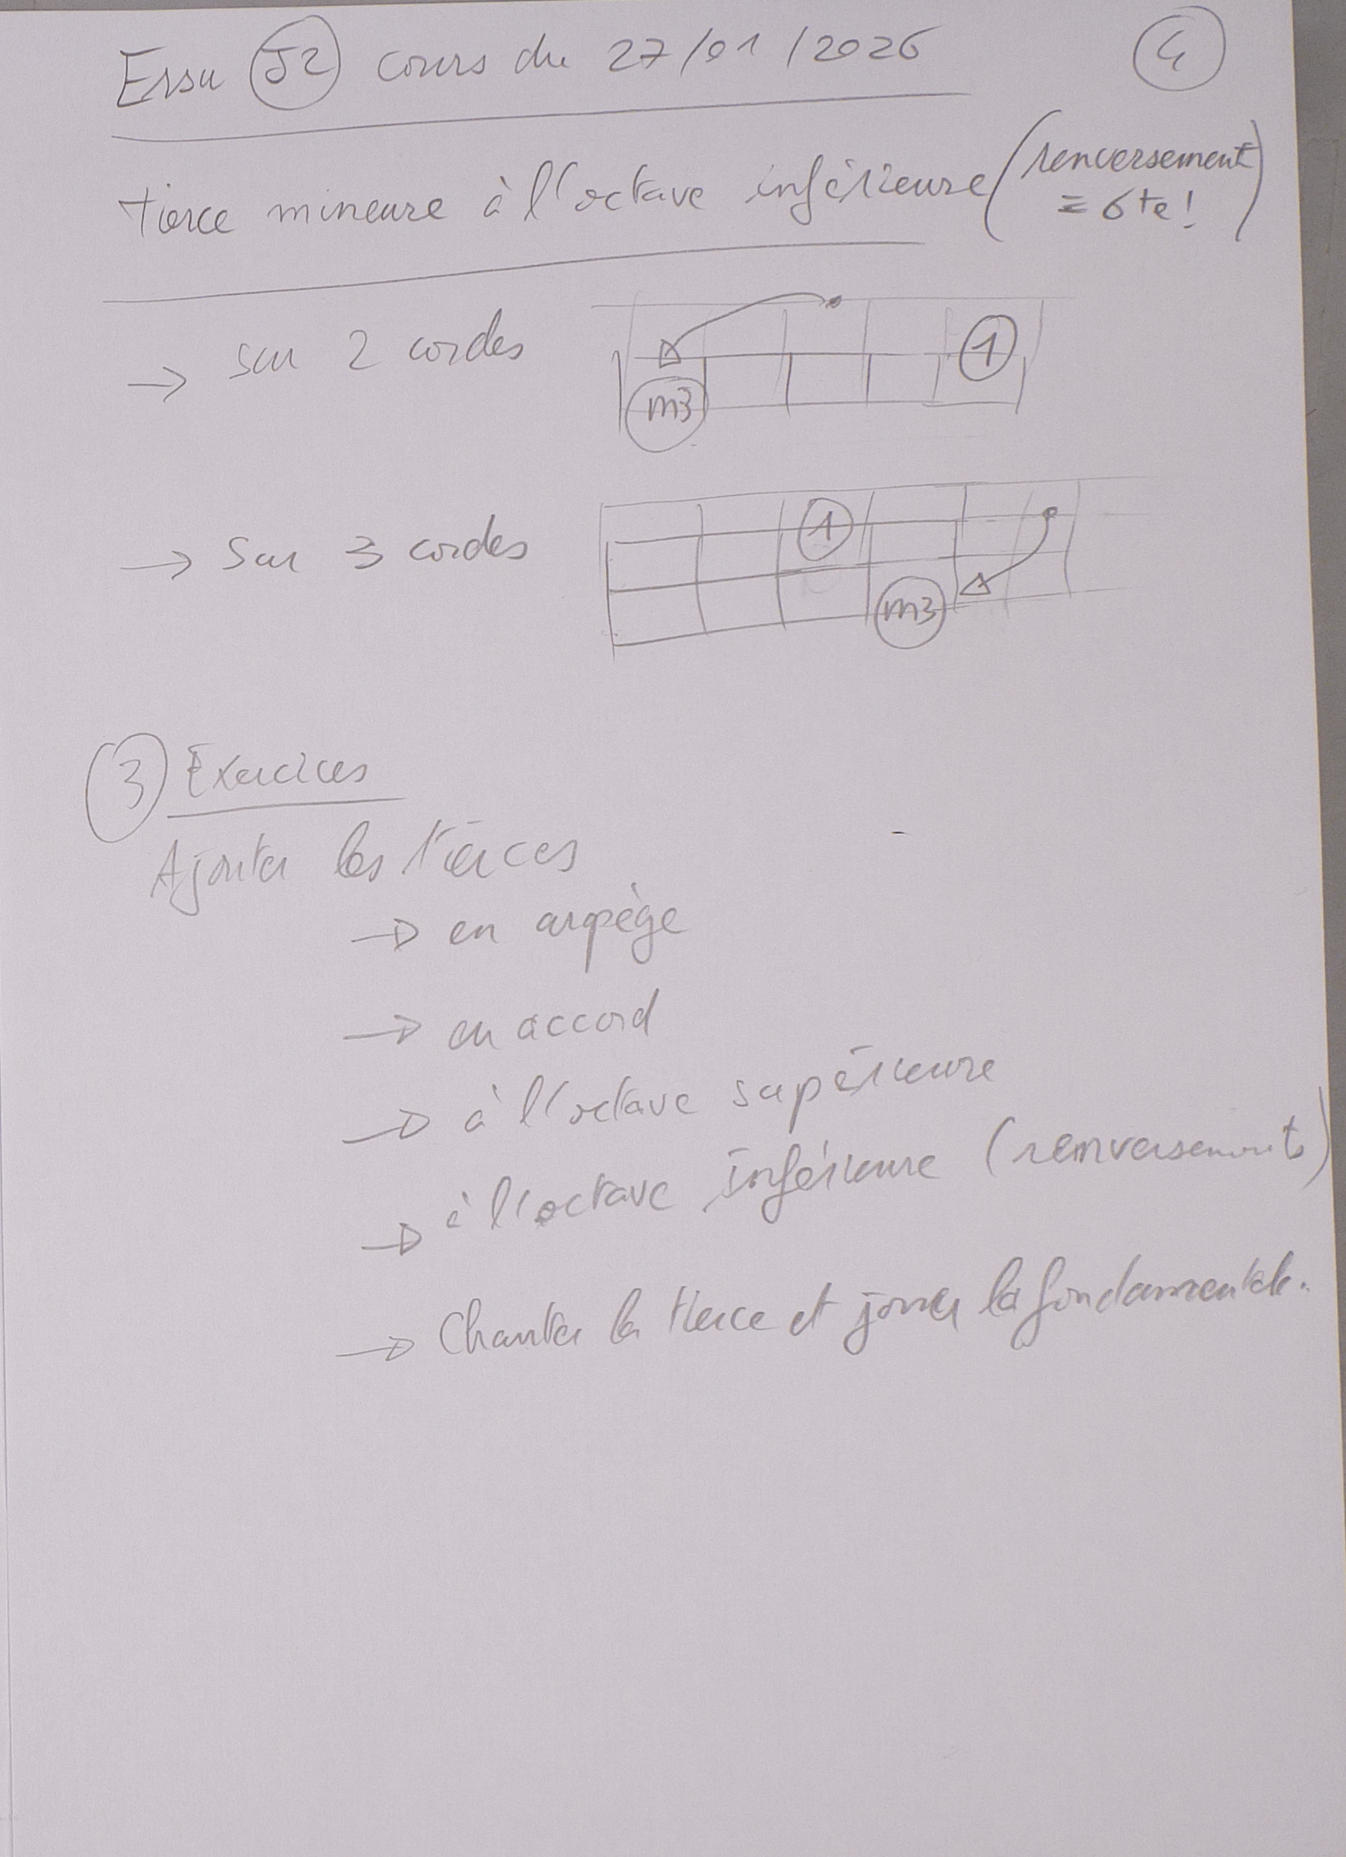 Essu J2 cours du 27/01/2026
4
tierce mineure à l'octave inférieure (renversement
= 6te!)
→ sur 2 cordes
1
m3
→ Sur 3 cordes
1
m3
3 Exercices
Ajouter les tierces
→ en arpège
→ en accord
→ à l'octave supérieure
→ à l'octave inférieure (renversements)
→ Chanter la tierce et jouer la fondamentale.